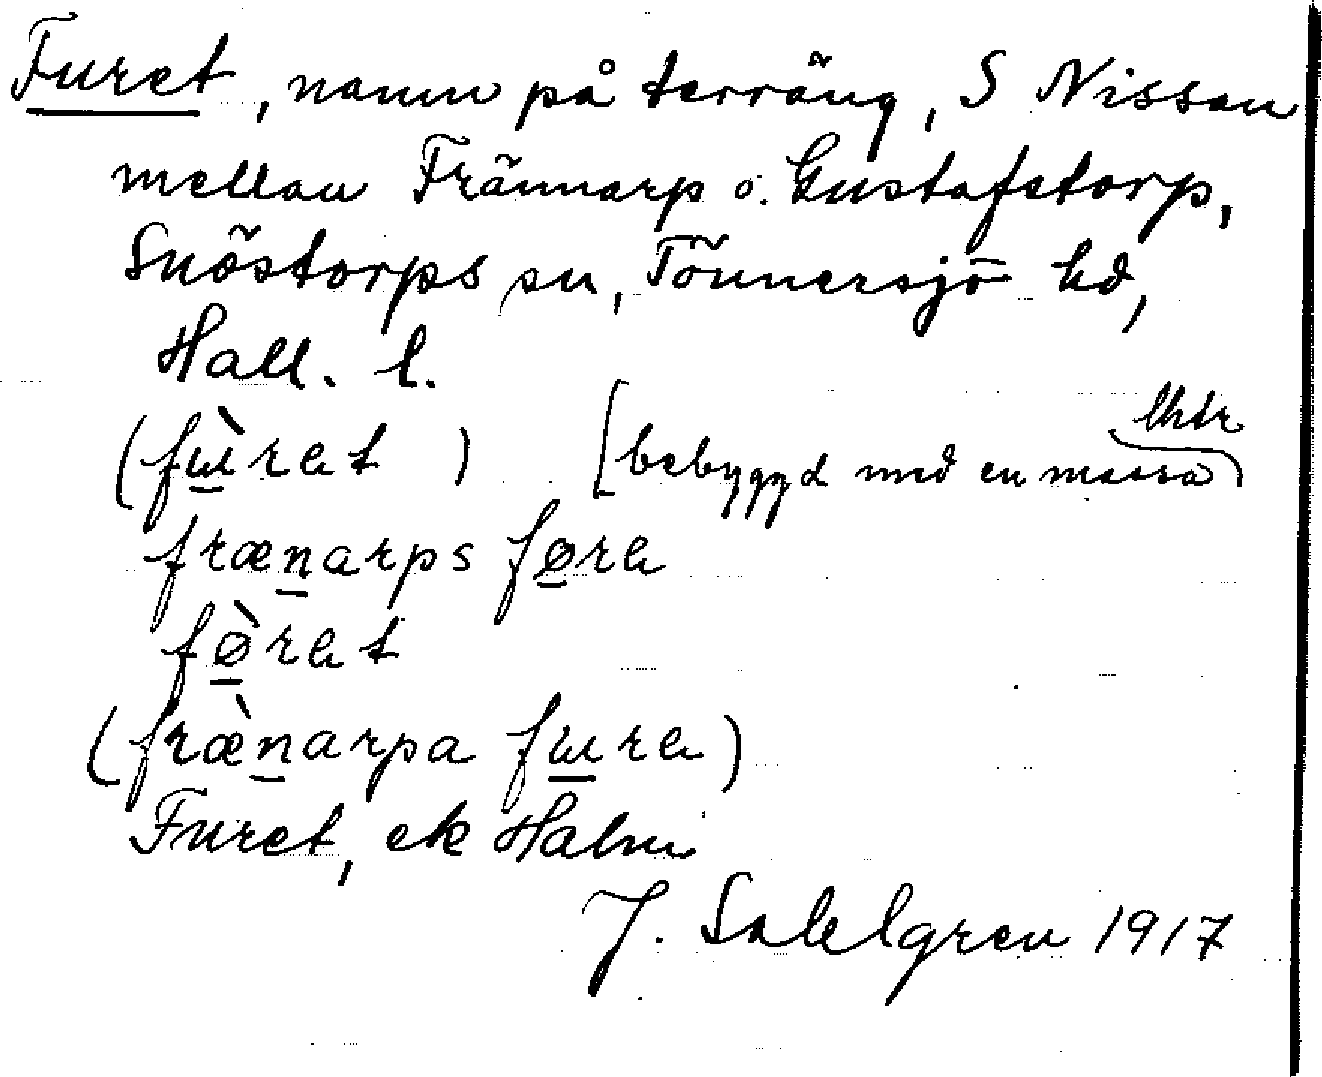 Furet, namn på terräng, S Nissan
mellan Frännarp o. Gustafstorp,
Snöstorps sn, Tönnersjö hd,
Hall. l.
(fɯ̀ret) [bebyggd med en massa lhtr
frænarps føre
fø̀ret
(fræ̀narpa fɯre)
Furet, ek Halm
J. Sahlgren 1917